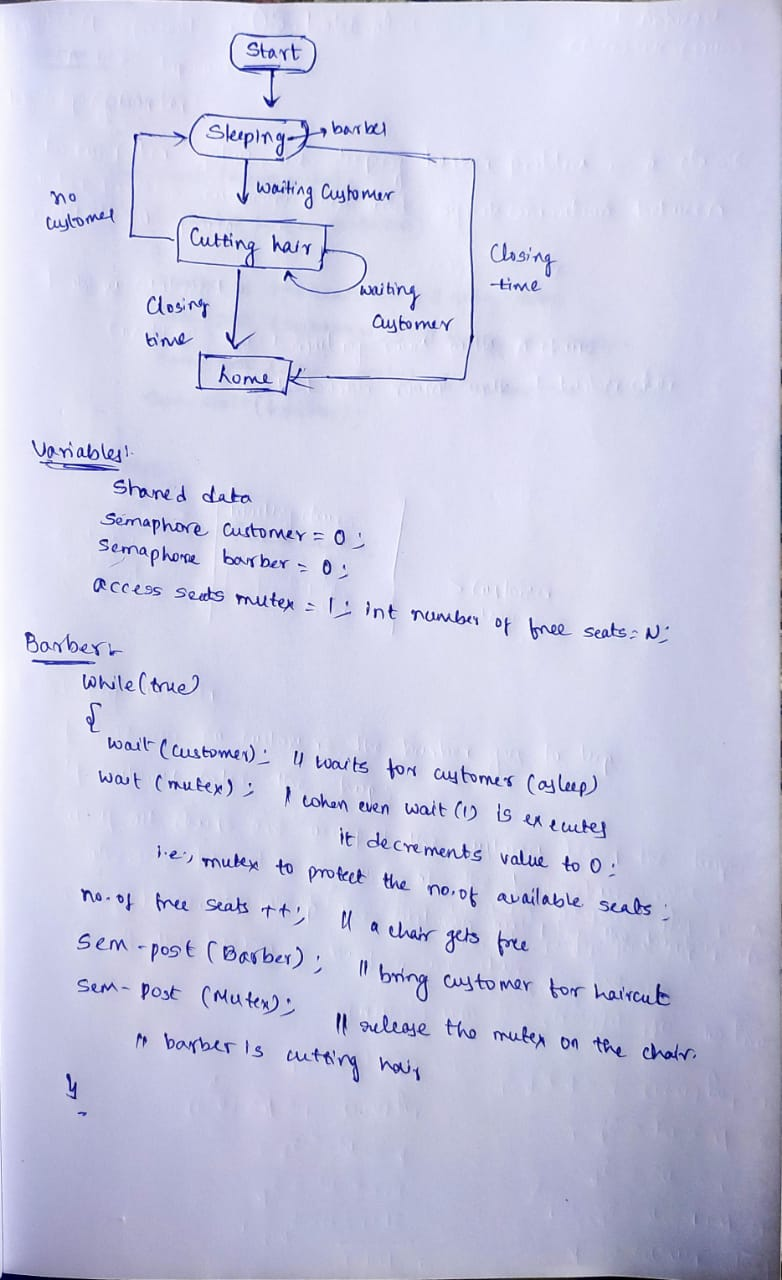 Start
Sleeping → barber
waiting Customer
no
customer
Cutting hair
Closing
time
waiting
Customer
Closing
time
home
Variables:
Shared data
Semaphore customer = 0;
Semaphore barber = 0;
access seats mutex = 1; int number of free seats = N;
Barber:-
while(true)
{
wait (customer); // waits for customer (asleep)
wait (mutex); // when even wait(1) is executes
it decrements value to 0;
i.e., mutex to protect the no. of available seats;
no. of free seats ++; // a chair gets free
Sem-post (Barber); // bring customer for haircut
Sem-post (Mutex); // release the mutex on the chair.
// barber is cutting hair
}